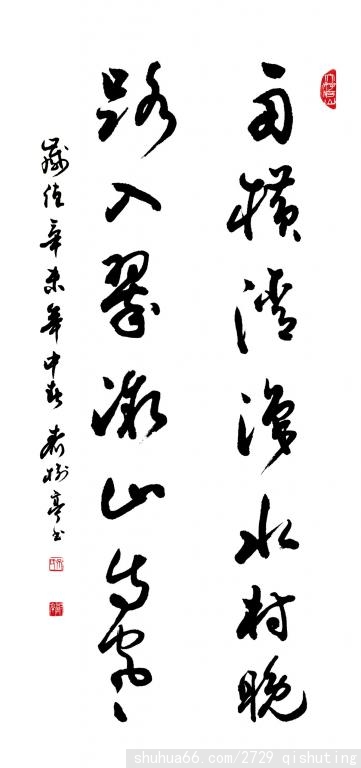 舟橫清淺水村晚
路入翠微山寺寒
歲值辛未年中秋 齐樹亭书
shuhua66.com/2729 qishuting